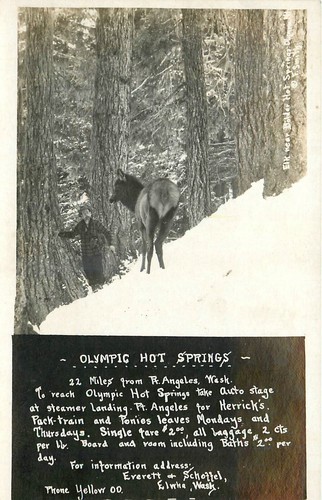 Elk near Olympic Hot Springs
~ OLYMPIC HOT SPRINGS ~
22 Miles from Pt. Angeles, Wash.
To reach Olympic Hot Springs take Auto stage
at steamer landing. Pt. Angeles for Herrick's.
Pack-train and Ponies leaves Mondays and
Thursdays. Single fare $2.00, all baggage, 2 cts
per lb. Board and room including Baths $2.00 per
day.
For information address:
Everett & Schoffel,
Phone Yellow 00. Elwha, Wash.